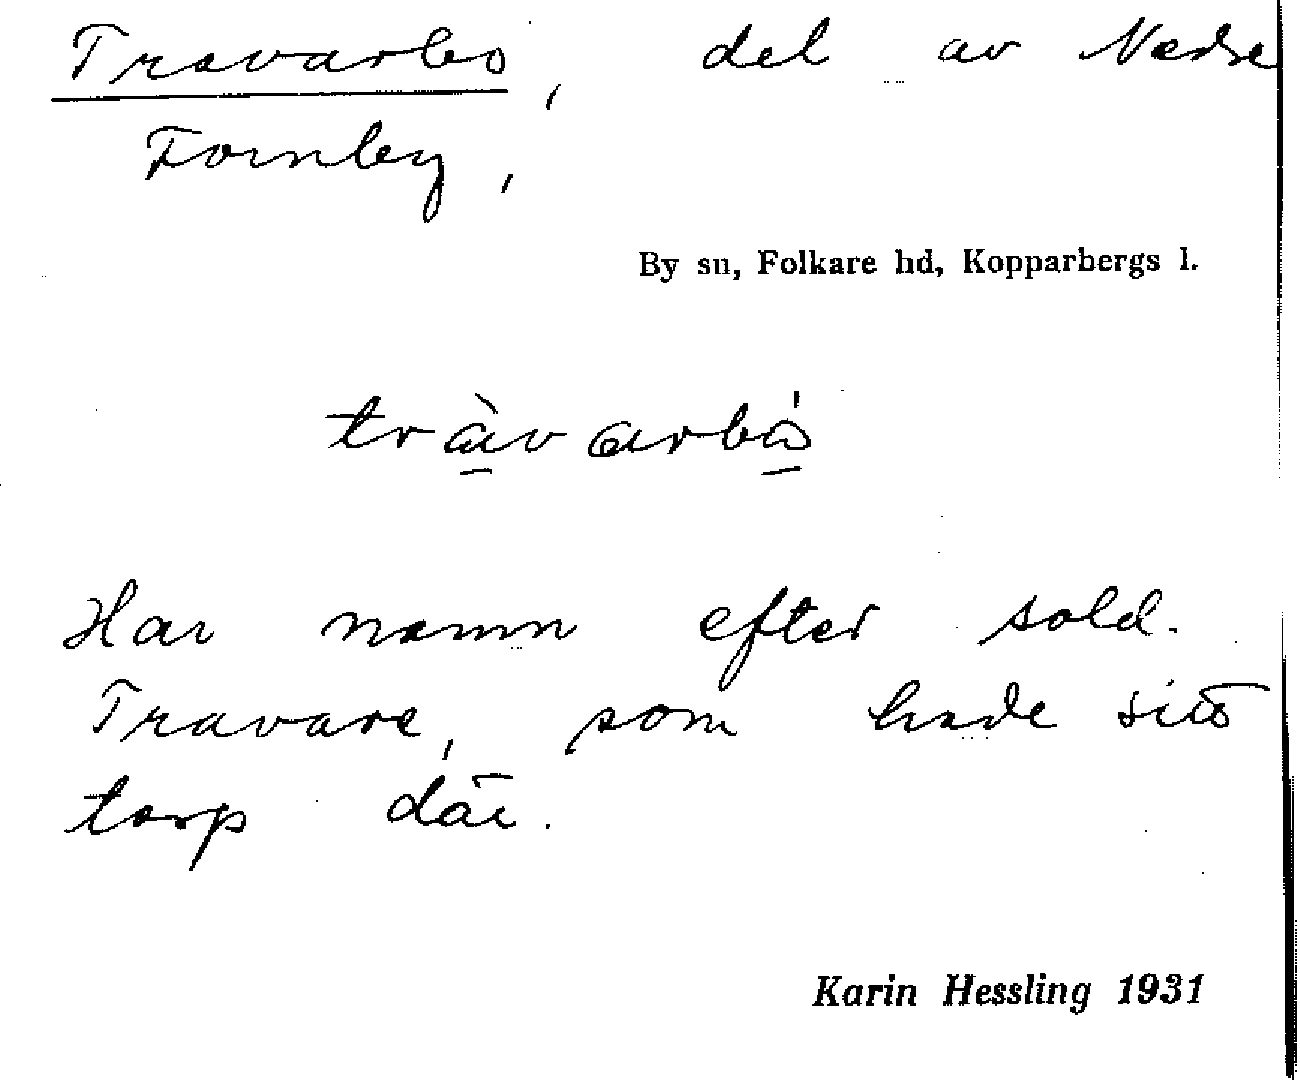 Travarbo, del av Nedre
Fornby,
By sn, Folkare hd, Kopparbergs l.
Har namn efter sold.
Travare, som hade sitt
torp där.
Karin Hessling 1931